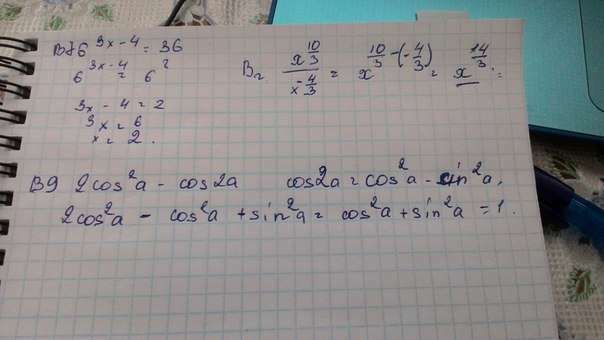 В7 6^(3x-4) = 36
6^(3x-4) = 6^2
3x - 4 = 2
3x = 6
x = 2.
В2 x^(10/3) / x^(-4/3) = x^(10/3 - (-4/3)) = x^(14/3) =
В9 2cos²a - cos2a cos2a = cos²a - sin²a,
2cos²a - cos²a + sin²a = cos²a + sin²a = 1.